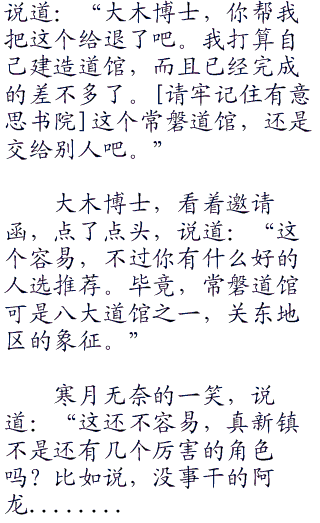 说道：“大木博士，你帮我
把这个给退了吧。我打算自
己建造道馆，而且已经完成
的差不多了。[请牢记住有意
思书院]这个常磐道馆，还是
交给别人吧。”
大木博士，看着邀请
函，点了点头，说道：“这
个容易，不过你有什么好的
人选推荐。毕竟，常磐道馆
可是八大道馆之一，关东地
区的象征。”
寒月无奈的一笑，说
道：“这还不容易，真新镇
不是还有几个厉害的角色
吗？比如说，没事干的阿
龙........